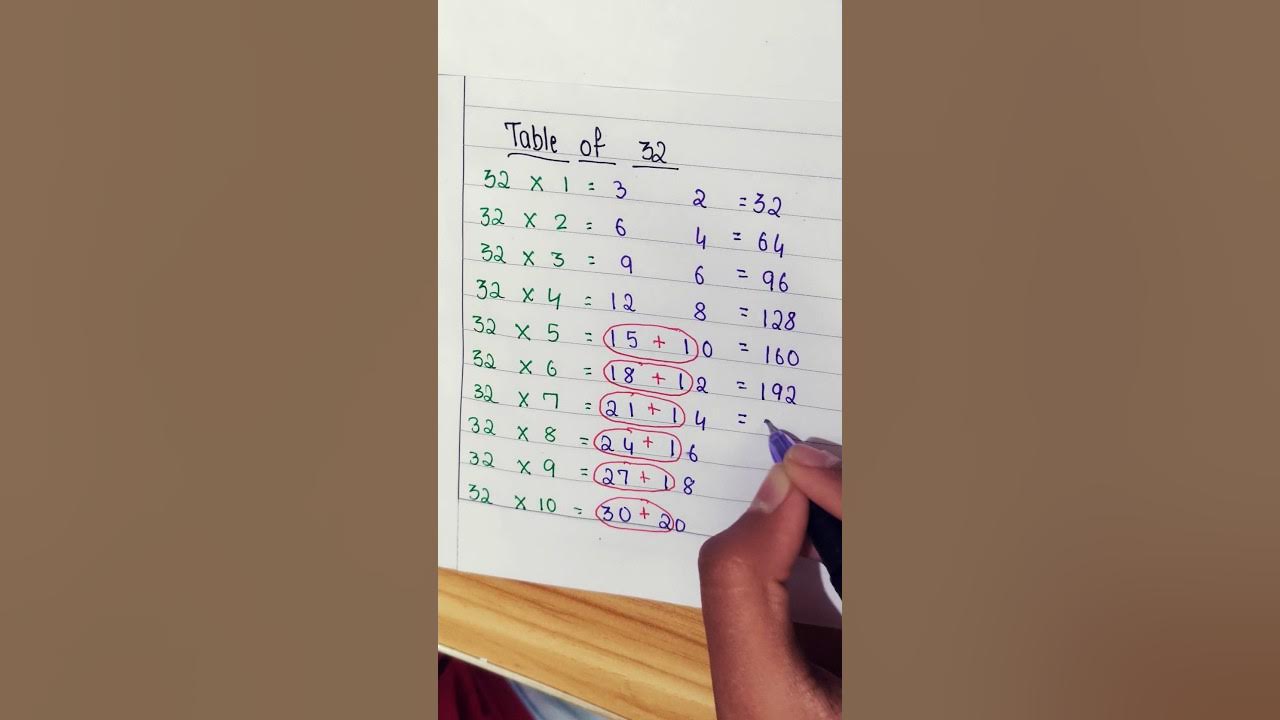 Table of 32
32 x 1 = 3 2 = 32
32 x 2 = 6 4 = 64
32 x 3 = 9 6 = 96
32 x 4 = 12 8 = 128
32 x 5 = 15 + 10 = 160
32 x 6 = 18 + 12 = 192
32 x 7 = 21 + 14 =
32 x 8 = 24 + 16
32 x 9 = 27 + 18
32 x 10 = 30 + 20